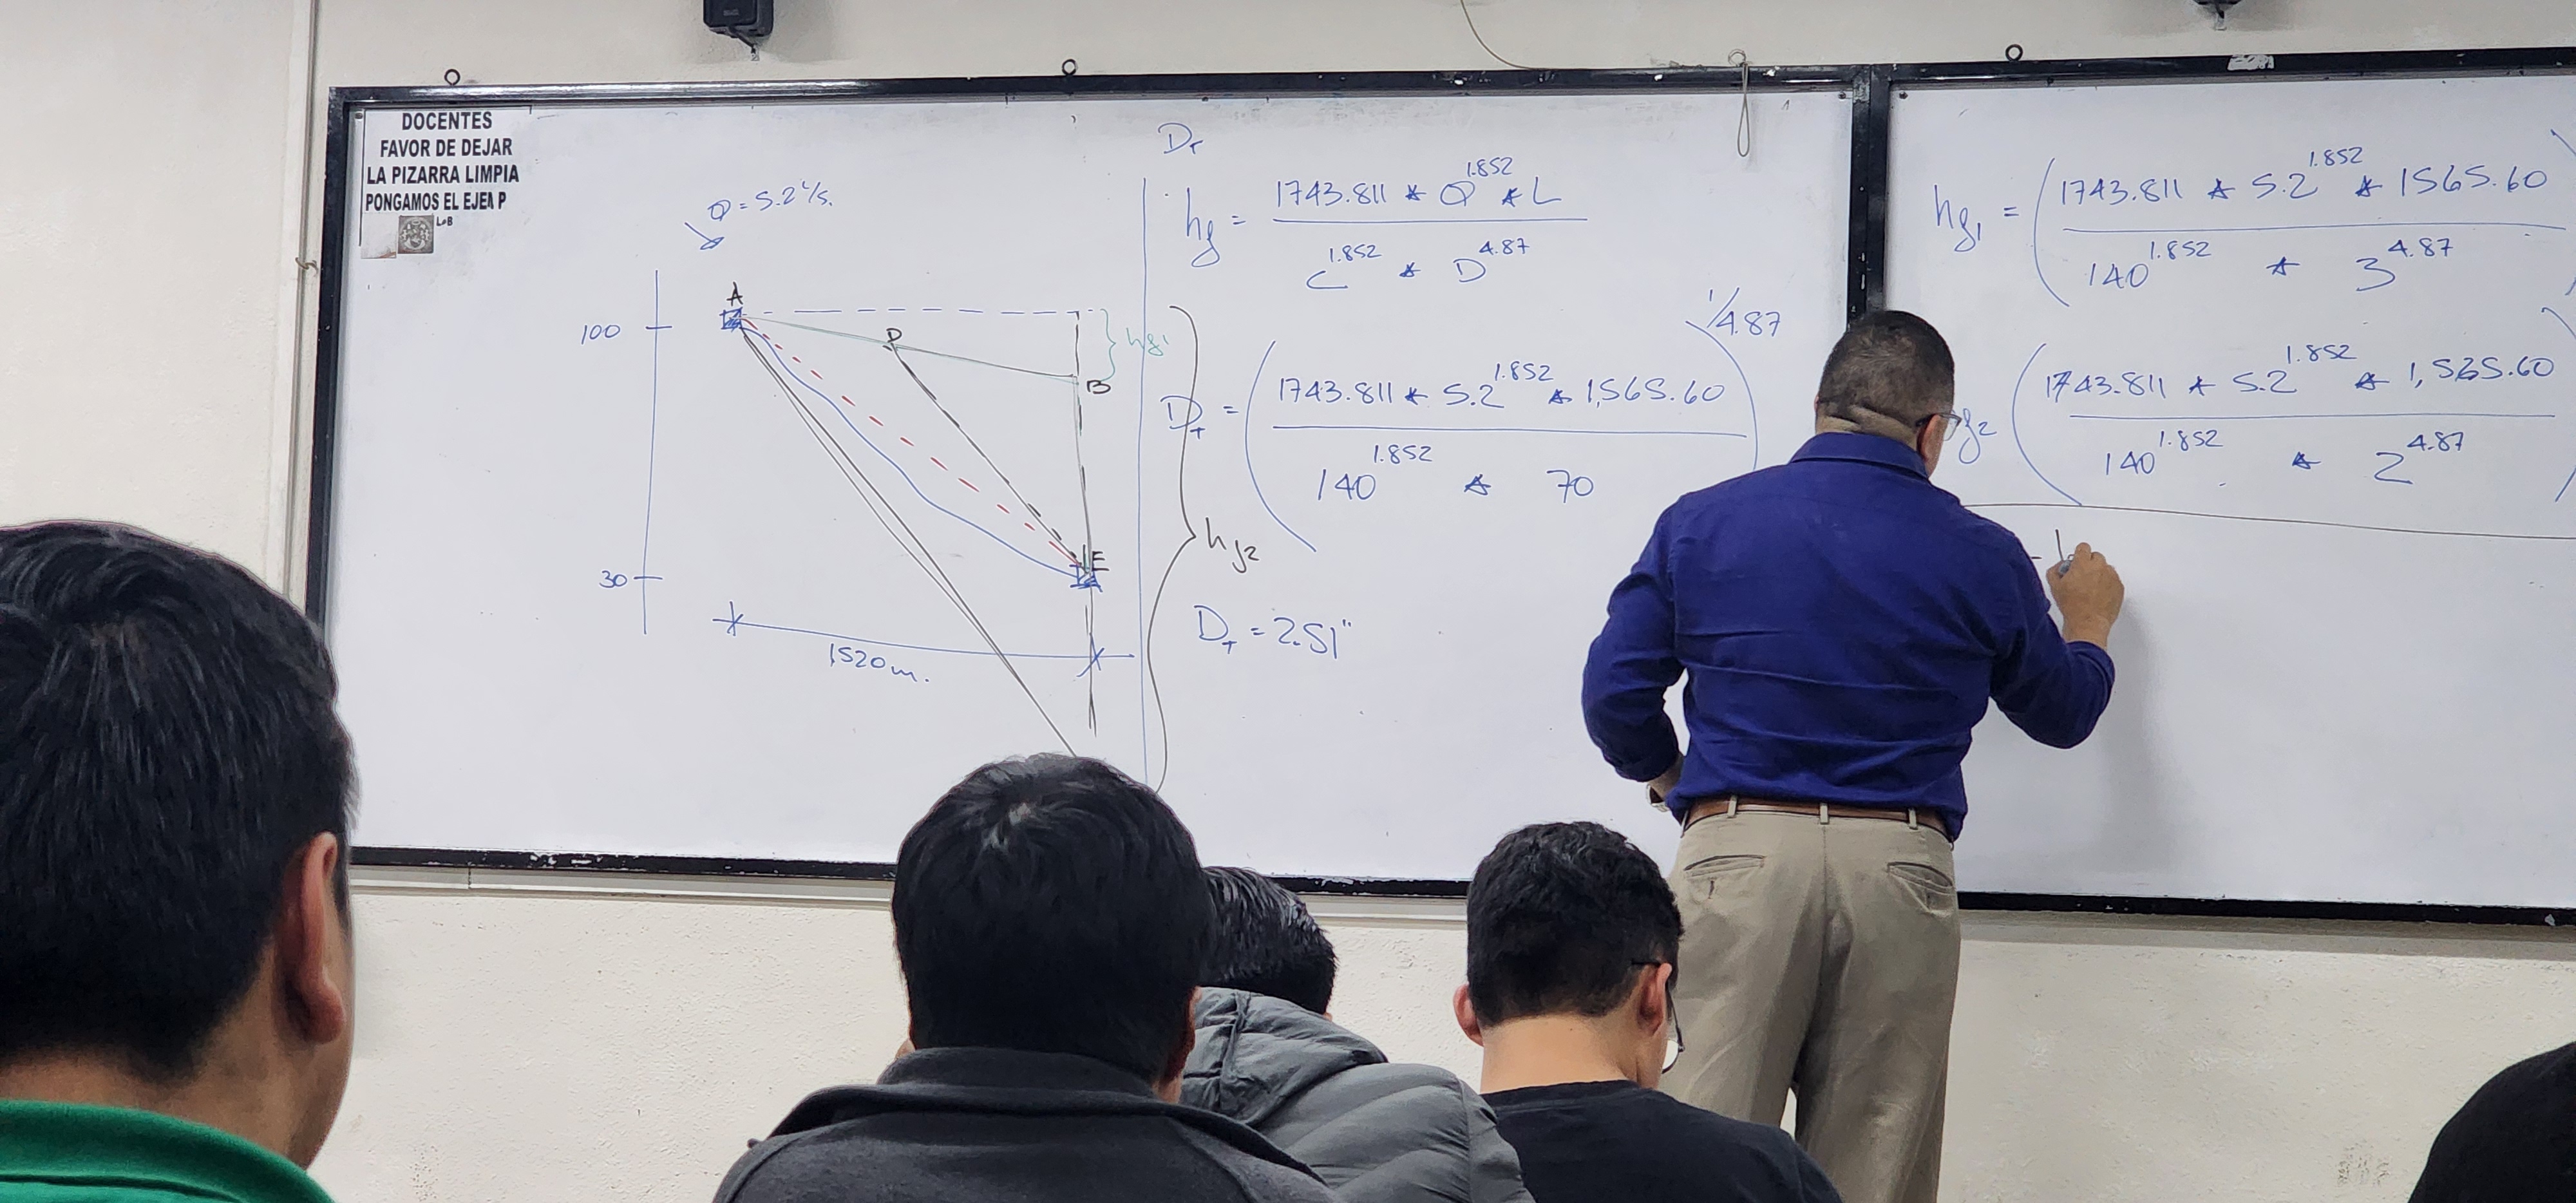 DOCENTES
FAVOR DE DEJAR
LA PIZARRA LIMPIA
PONGAMOS EL EJEM P
LAB
Q = 5.2 l/s.
A
100
D
B
hf1
E
30
hf2
1520 m.
DT
hf = 1743.811 * Q^1.852 * L / C^1.852 * D^4.87
DT = (1743.811 * 5.2^1.852 * 1,565.60 / 140^1.852 * 70)^1/4.87
DT = 2.51"
hf1 = (1743.811 * 5.2^1.852 * 1565.60 / 140^1.852 * 3^4.87)
f2 (1743.811 * 5.2^1.852 * 1,565.60 / 140^1.852 * 2^4.87)